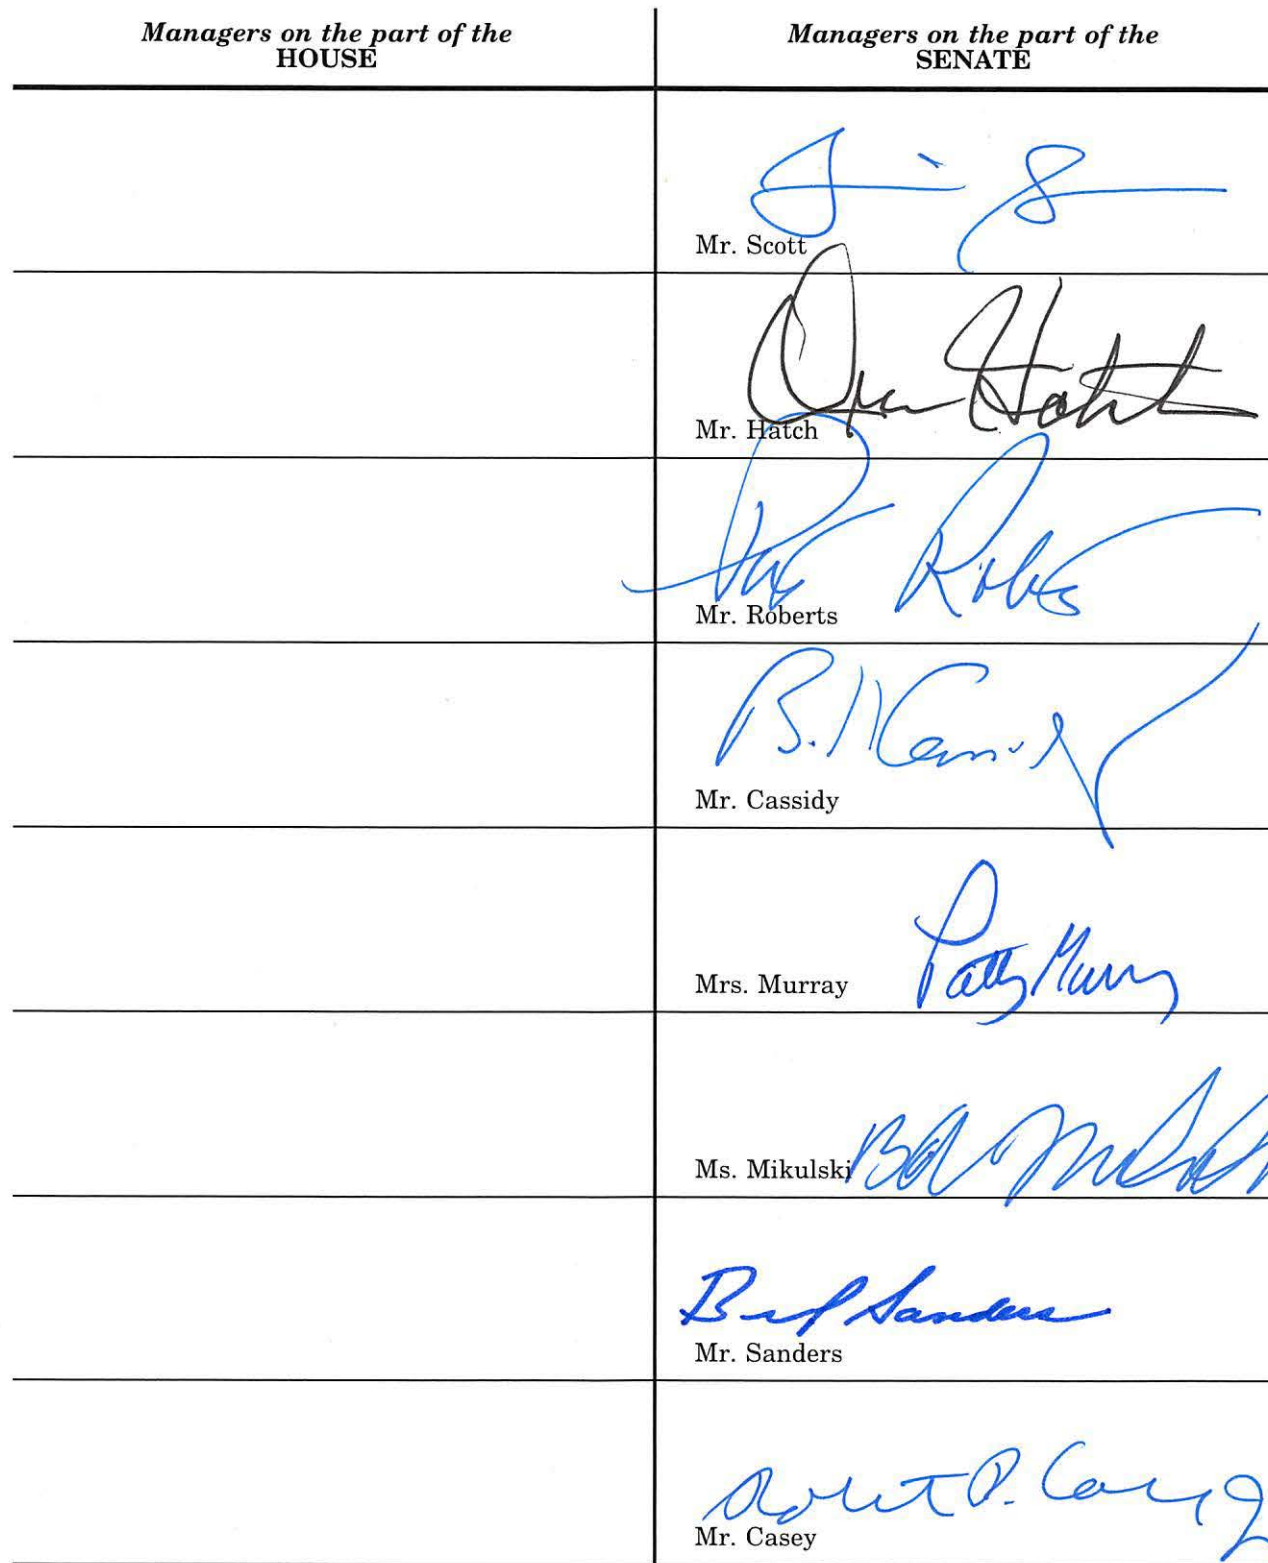 Managers on the part of the
HOUSE
Managers on the part of the
SENATE
Mr. Scott
Orrin Hatch
Mr. Hatch
Pat Roberts
Mr. Roberts
B. Cassidy
Mr. Cassidy
Patty Murray
Mrs. Murray
Ms. Mikulski
Sanders
Mr. Sanders
Robert P. Casey
Mr. Casey